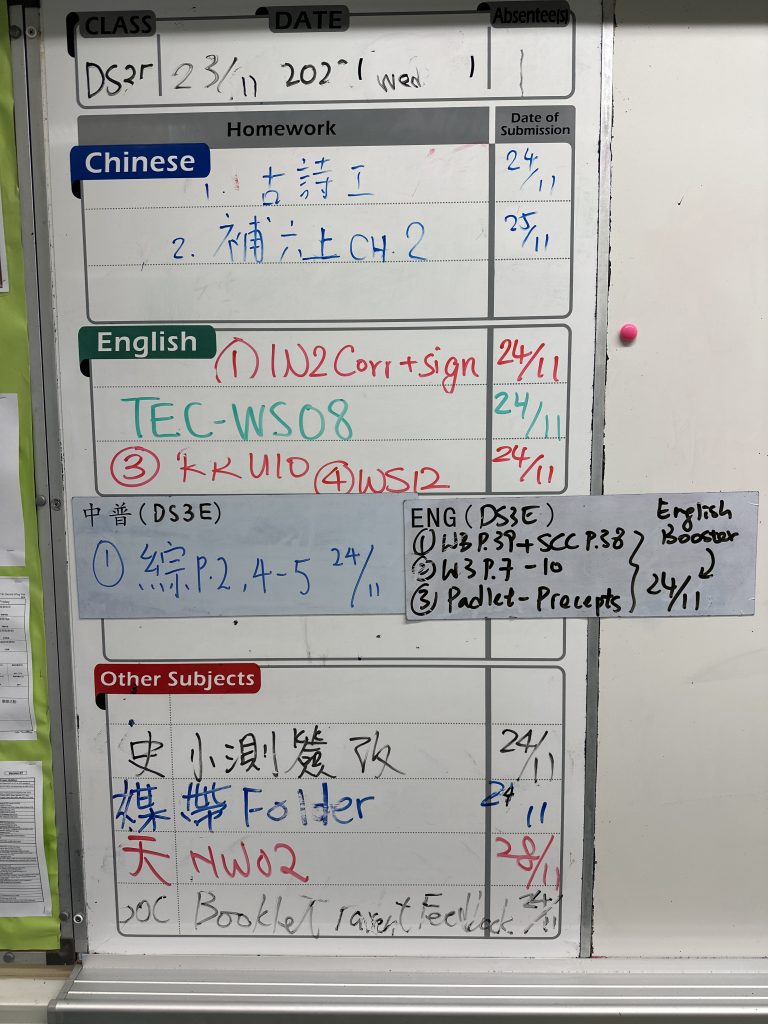 CLASS DATE Absentee(s)
23/11 202 Wed 1
Homework Date of Submission
Chinese
1. 古詩工 24/11
2. 補六上 CH.2 25/11
English
① IN2 Corr + sign 24/11
TEC-WS08 24/11
③ KK U10 ④ WS12 24/11
中普(DS3E)
① 綜P.2,4-5 24/11
ENG(DS3E) English Booster
① W3 P.39 + SCC P.38
② W3 P.7-10
③ Padlet-Precepts 24/11
Other Subjects
史 小測簽改 24/11
帶 Folder 24 11
天 HW02 28/11
Booklet Parent 24/11